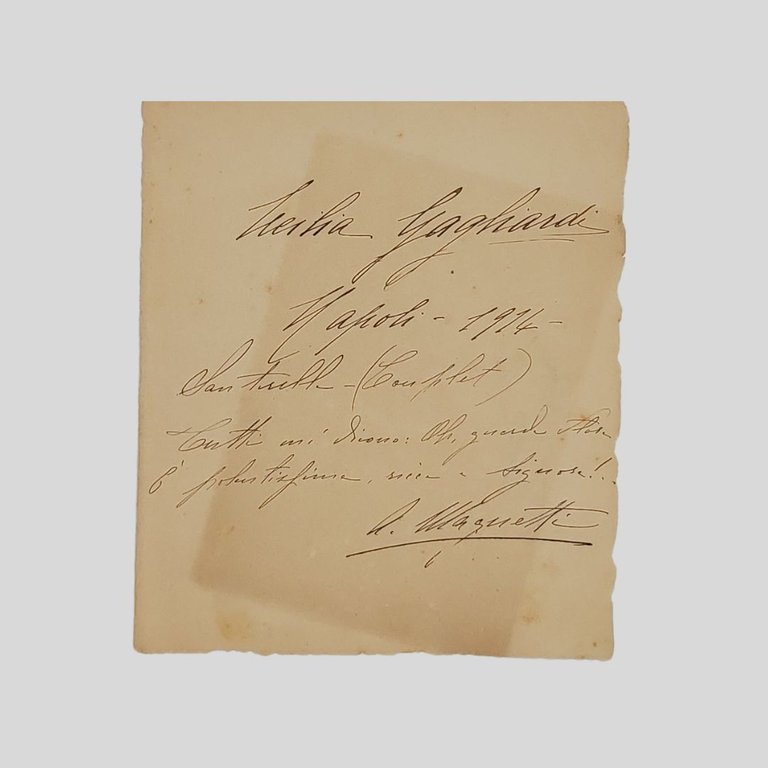 Cecilia Gagliardi
Napoli - 1914 -
(Couplet)
Tutti mi dicono: Oh, guarda
È robustissima, mia Signora!!..
A. Magnetti